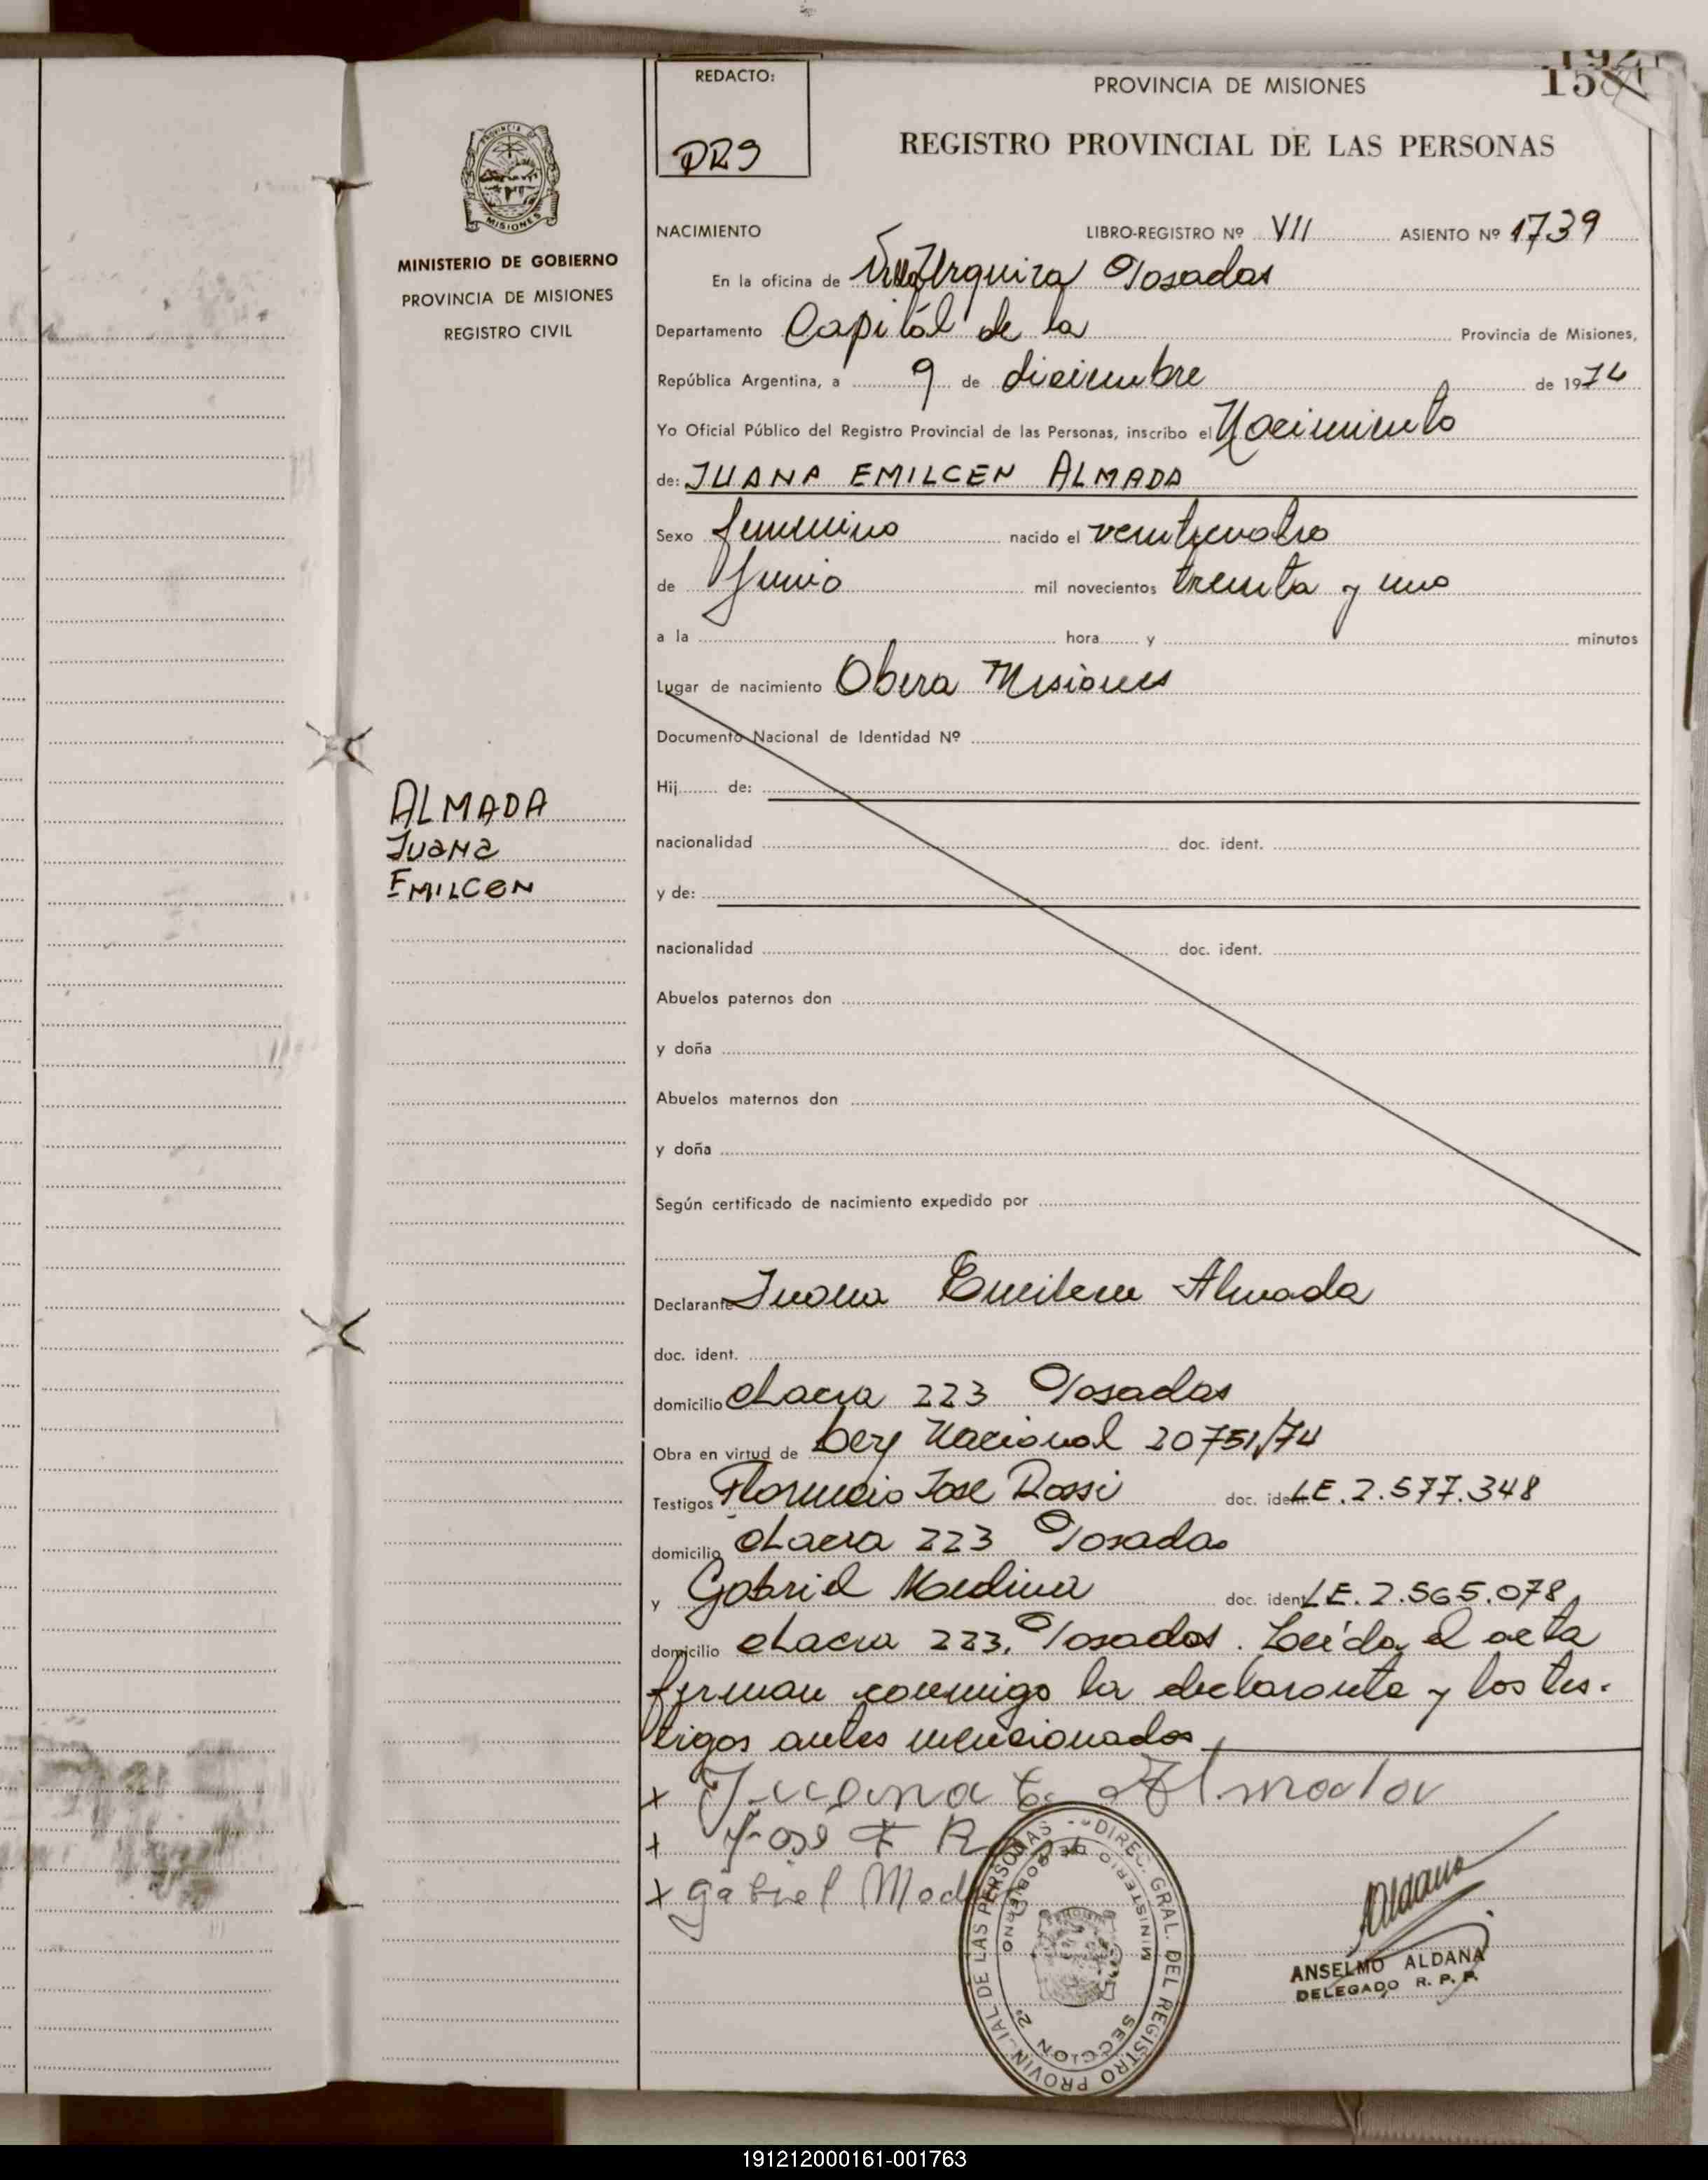 REDACTO:
PROVINCIA DE MISIONES
158
REGISTRO PROVINCIAL DE LAS PERSONAS
PROVINCIA DE
MISIONES
MINISTERIO DE GOBIERNO
PROVINCIA DE MISIONES
REGISTRO CIVIL
NACIMIENTO LIBRO-REGISTRO Nº VII ASIENTO Nº 1739
En la oficina de Villa Urquiza Posadas
Departamento Capitál de la Provincia de Misiones,
República Argentina, a 9 de diciembre de 1974
Yo Oficial Público del Registro Provincial de las Personas, inscribo el Nacimiento
de: JUANA EMILCEN ALMADA
Sexo femenino nacido el venticuatro
de Junio mil novecientos treinta y uno
a la hora y minutos
Lugar de nacimiento Obera Misiones
Documento Nacional de Identidad Nº
Hij de:
nacionalidad doc. ident.
y de:
nacionalidad doc. ident.
Abuelos paternos don
y doña
Abuelos maternos don
y doña
Según certificado de nacimiento expedido por
ALMADA
Juana
EMILCEN
Declarante Juana Emilcen Almada
doc. ident.
domicilio chacra 223 Posadas
Obra en virtud de Ley Nacional 20751/74
Testigos Florencio Jose Rossi doc. ident. LE. 2.577.348
domicilio chacra 223 Posadas
y Gabriel Medina doc. ident. LE. 2.565.078
domicilio chacra 223, Posadas. Leída el acta
firman conmigo la declarante y los tes-
tigos antes mencionados
x Juana E. Almada
x José F R
x gabriel Med
DIREC. GRAL. DEL REGISTRO PROVINCIAL DE LAS PERSONAS
MINISTERIO DE GOBIERNO
SECCION 2ª
Aldana
ANSELMO ALDANA
DELEGADO R. P. P.
191212000161-001763